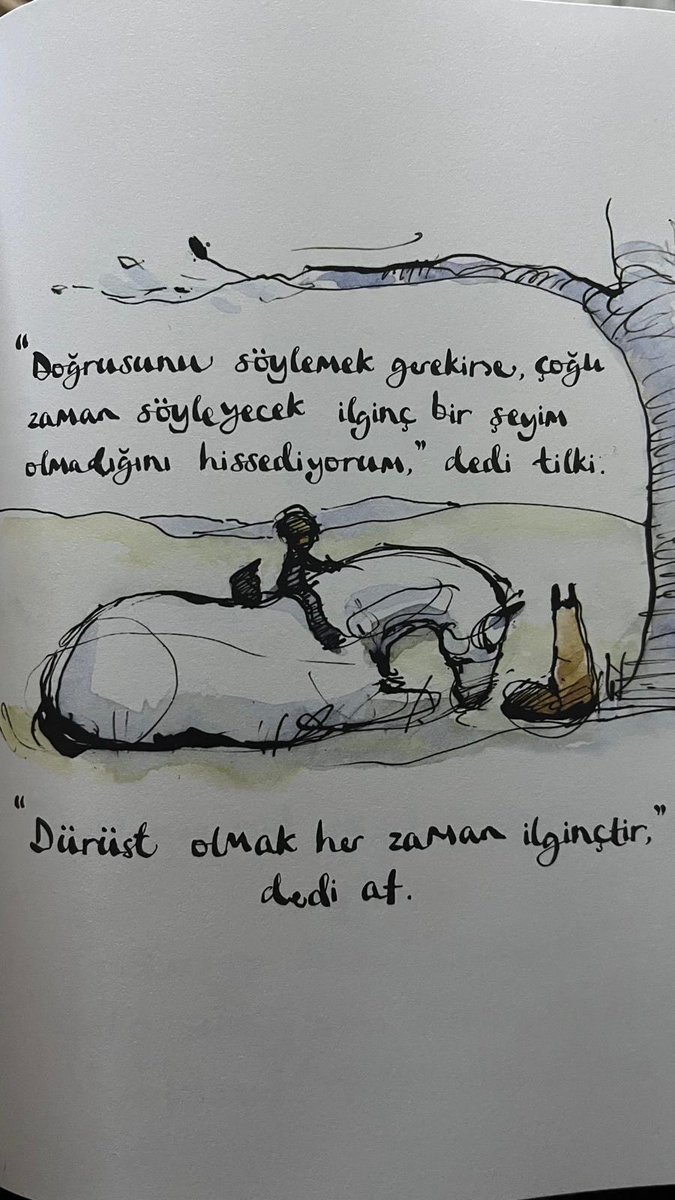 "Doğrusunu söylemek gerekirse, çoğu
zaman söyleyecek ilginç bir şeyim
olmadığını hissediyorum," dedi tilki.
"Dürüst olmak her zaman ilginçtir,"
dedi at.